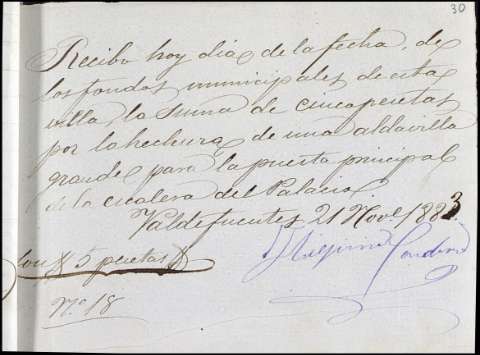 30
Recibo hoy dia de la fecha, de
los fondos municipales de esta
villa, la suma de cinco pesetas
por la hechura de una aldavilla
grande para la puerta principal
de la escalera del Palacio.
Valdefuentes, 21 Nove 1883
Son # 5 pesetas #
Nº 18